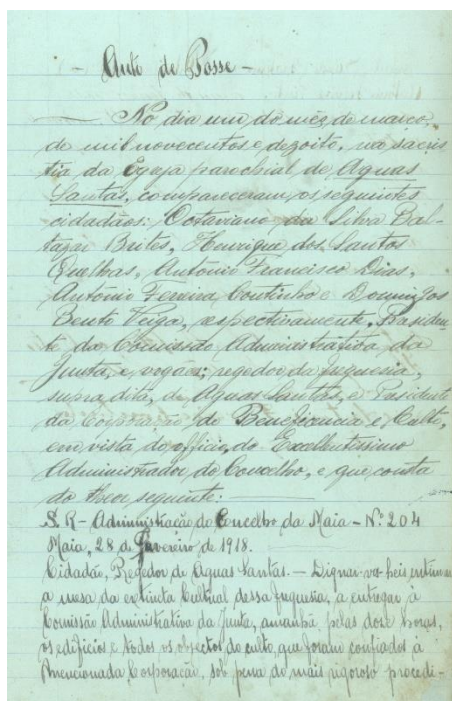 Auto de Posse -
No dia um do mêz de março,
de mil novecentos e dezoito, na sacris
tia da Egreja parochial de Aguas
Santas, compareceram, os seguintes
cidadãos: Octaviano da Silva Bal-
tazar Brites, Henrique dos Santos
Quelhas, António Francisco Dias,
António Ferreira Coutinho e Domingos
Bento Veiga, respectivamente, Presiden-
te da Comissão Administrativa da
Junta, e vogáes; regedor da freguesia,
supra dita, de Aguas Santas, e Presidente
da Corporação de Beneficencia e Culto,
em vista do officio, do Excellentissimo
Administrador do Concelho, e que consta
do theor seguinte:
S. R - Administração do Concelho da Maia - Nº 204
Maia, 28 de Fevereiro de 1918.
Cidadão, Regedor de Aguas Santas. - Dignar-vos heis intimar
a mesa da extincta Cultual dessa freguesia, a entregar à
Comissão Administrativa da Junta, amanhã, pelas doze horas,
os edificios e todos os objectos do culto, que foram confiados à
mencionada Corporação, sob pena do mais rigoroso procedi-